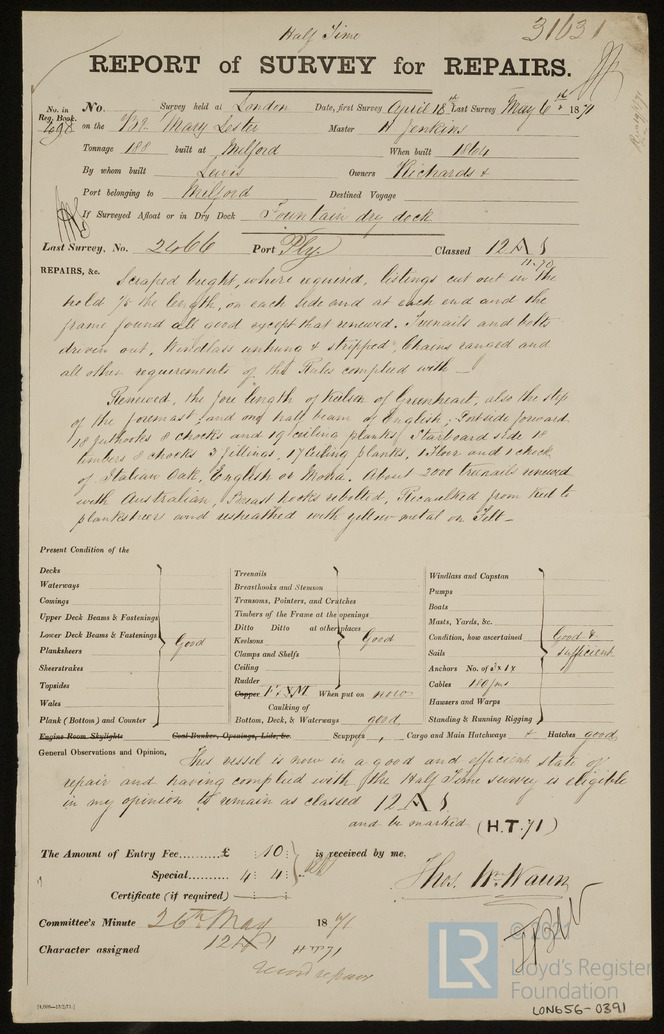 Half Time
31631
REPORT of SURVEY for REPAIRS.
No. in Reg. Book. No. Survey held at London Date, first Survey April 18th Last Survey May 6th 1871
498 on the Bn Mary Lester Master H Jenkins
Tonnage 188 built at Milford When built 1864
By whom built Lewis Owners Richards &
Port belonging to Milford Destined Voyage
If Surveyed Afloat or in Dry Dock Fountain dry dock
Last Survey, No. 2466 Port Ply. Classed 12 A 1
REPAIRS, &c. Scraped bright, where required, listings cut out in the
hold 2/3 the length, on each side and at each end and the
frame found all good except that renewed. Treenails and bolts
driven out, Windlass unhung & stripped, Chains ranged and
all other requirements of the Rules complied with —
Renewed, the fore length of Kelson of Greenheart, also the step
of the foremast, and one half beam of English; Portside forward
18 futhooks 8 chocks and 19 ceiling planks, Starboard side 18
timbers 8 chocks 3 fillings, 17 Ceiling planks, 1 Floor and 1 chock
of Italian Oak, English or Mora. About 2000 treenails renewed
with Australian, Breast hooks rebolted, Recaulked from keel to
planksheers and resheathed with yellow metal on Felt —
Present Condition of the
Decks
Waterways
Comings
Upper Deck Beams & Fastenings
Lower Deck Beams & Fastenings
Planksheers
Sheerstrakes
Topsides
Wales
Plank (Bottom) and Counter
Good
Treenails
Breasthooks and Stemson
Transoms, Pointers, and Crutches
Timbers of the Frame at the openings
Ditto Ditto at other places
Keelsons
Clamps and Shelfs
Ceiling
Rudder
Good
Copper F & YM When put on now
Caulking of
Bottom, Deck, & Waterways good
Windlass and Capstan
Pumps
Boats
Masts, Yards, &c.
Condition, how ascertained
Sails
Anchors No. of 3 x 1 x
Cables 180 fms
Hawsers and Warps
Standing & Running Rigging
Good & sufficient
Engine Room Skylights Coal Bunker, Openings, Lids, &c. Scuppers , Cargo and Main Hatchways & Hatches good
General Observations and Opinion, This vessel is now in a good and efficient state of
repair and having complied with the Half Time survey is eligible
in my opinion to remain as classed 12 A 1
and be marked (H.T. 71)
The Amount of Entry Fee.......... £ : 10 : is received by me,
Special .......... 4 : 4 :
Certificate (if required)
Thos. Wm. Wawn
Committee's Minute 26th May 1871
Character assigned 12 A 1
© 2021
LR Lloyd's Register
Foundation
LON656-0391